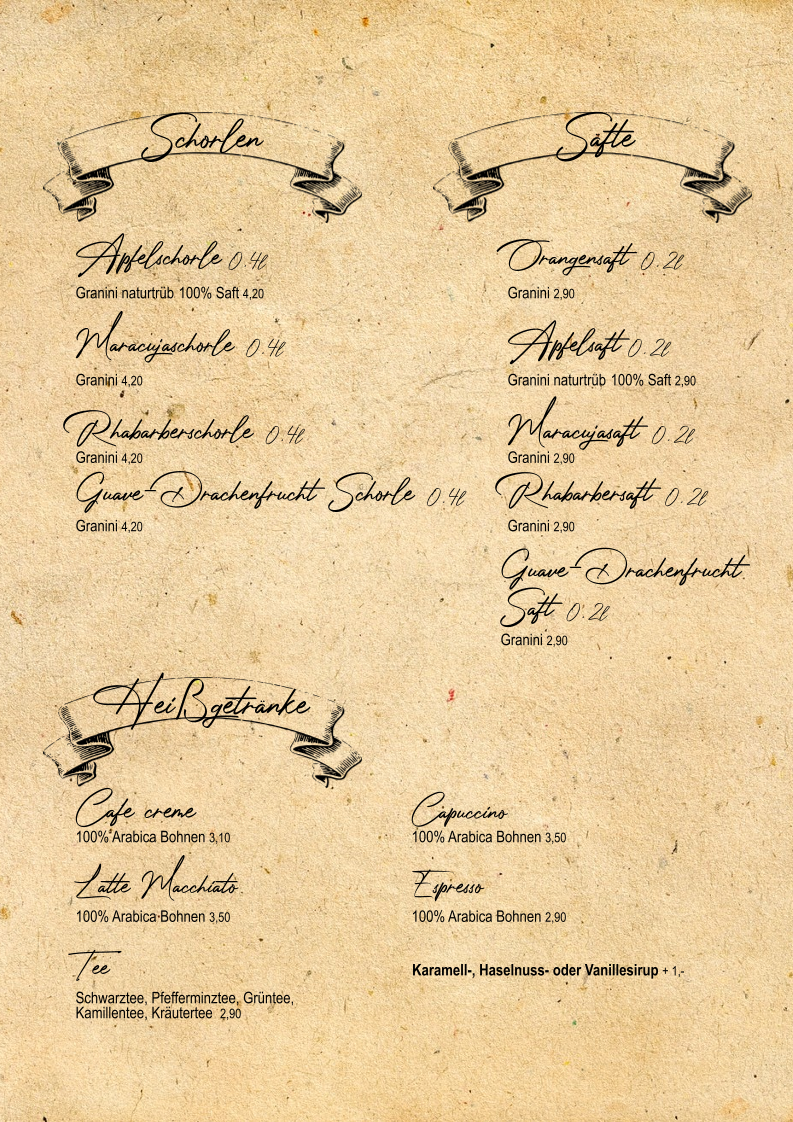 Schorlen
Apfelschorle 0.4l
Granini naturtrüb 100% Saft 4,20
Maracujaschorle 0.4l
Granini 4,20
Rhabarberschorle 0.4l
Granini 4,20
Guave-Drachenfrucht Schorle 0.4l
Granini 4,20
Säfte
Orangensaft 0.2l
Granini 2,90
Apfelsaft 0.2l
Granini naturtrüb 100% Saft 2,90
Maracujasaft 0.2l
Granini 2,90
Rhabarbersaft 0.2l
Granini 2,90
Guave-Drachenfrucht
Saft 0.2l
Granini 2,90
Heißgetränke
Cafe creme
100% Arabica Bohnen 3,10
Latte Macchiato
100% Arabica Bohnen 3,50
Tee
Schwarztee, Pfefferminztee, Grüntee,
Kamillentee, Kräutertee 2,90
Capuccino
100% Arabica Bohnen 3,50
Espresso
100% Arabica Bohnen 2,90
Karamell-, Haselnuss- oder Vanillesirup + 1,-